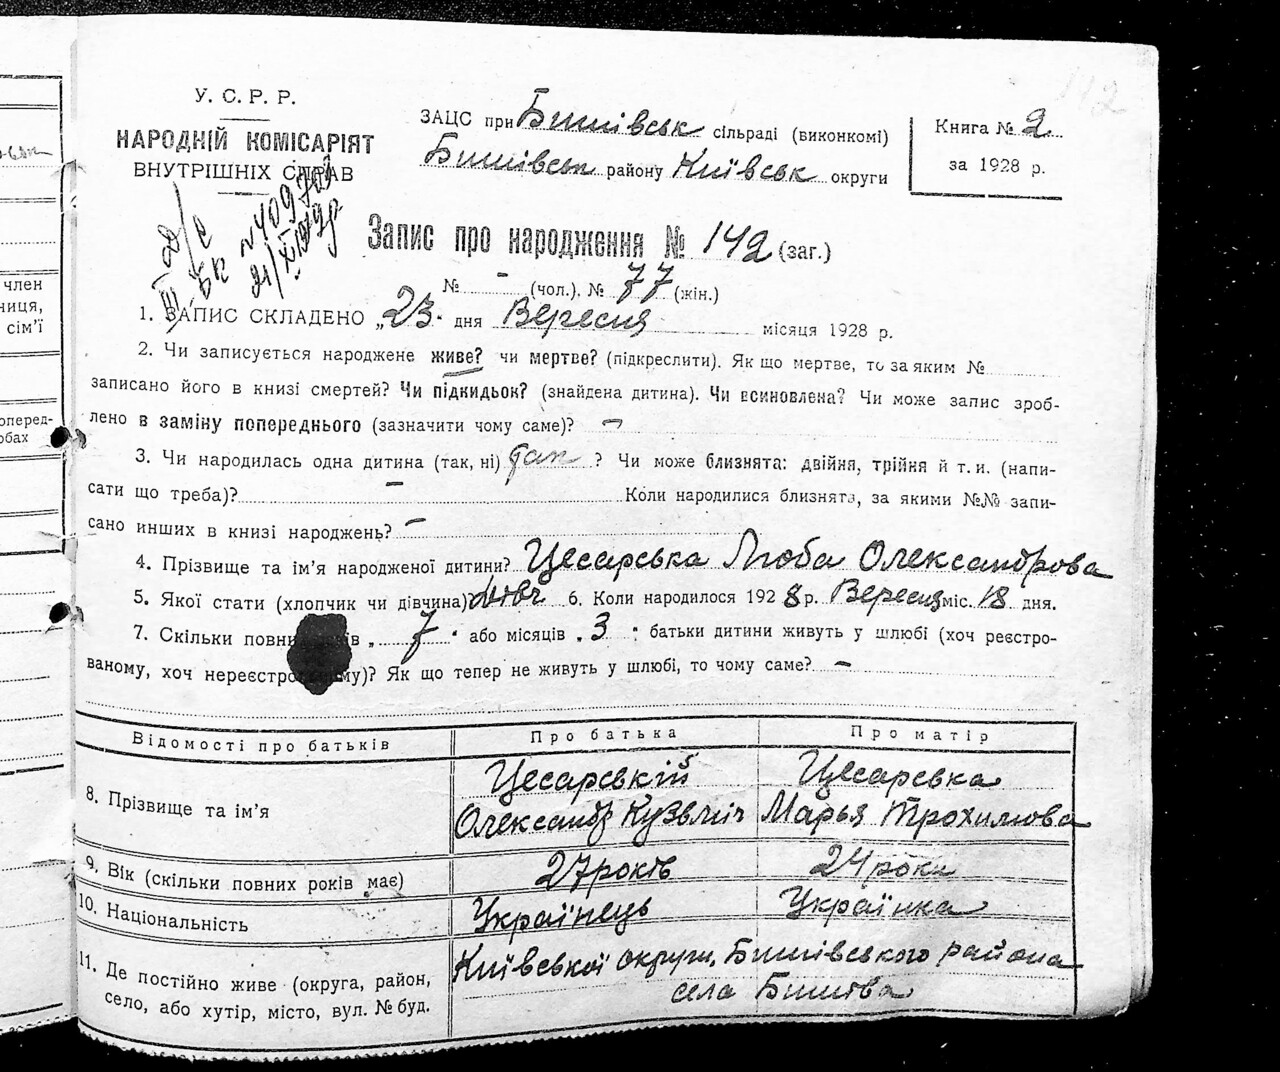 142
У. С. Р. Р.
НАРОДНІЙ КОМІСАРІЯТ
ВНУТРІШНІХ СПРАВ
ЗАЦС при Бишівськ сільраді (виконкомі)
Бишівськ району Київськ округи
Книга № 2
за 1928 р.
Запис про народження № 142 (заг.)
№ - (чол.). № 77 (жін.)
1. ЗАПИС СКЛАДЕНО „23" дня Вересня місяця 1928 р.
2. Чи записується народжене живе? чи мертве? (підкреслити). Як що мертве, то за яким №
записано його в книзі смертей? Чи підкидьок? (знайдена дитина). Чи всиновлена? Чи може запис зроб-
лено в заміну попереднього (зазначити чому саме)? —
3. Чи народилась одна дитина (так, ні) так ? Чи може близнята: двійня, трійня й т. и. (напи-
сати що треба)? — Коли народилися близнята, за якими №№ запи-
сано инших в книзі народжень? —
4. Прізвище та ім'я народженої дитини? Цесарська Люба Олександрова
5. Якої стати (хлопчик чи дівчина)? дівч 6. Коли народилося 1928 р. Вересня міс. 18 дня.
7. Скільки повних років „ 7 " або місяців „ 3 " батьки дитини живуть у шлюбі (хоч реєстро-
ваному, хоч нереєстрованому)? Як що тепер не живуть у шлюбі, то чому саме? —
Відомості про батьків Про батька Про матір
8. Прізвище та ім'я
Цесарській
Олександр Кузьмич
Цесарська
Марья Трохимова
9. Вік (скільки повних років має) 27 років 24 роки
10. Національність Українець Українка
11. Де постійно живе (округа, район,
село, або хутір, місто, вул. № буд.
Київської округи, Бишівського района
села Бишева
член
ниця,
сім'ї
оперед-
обах